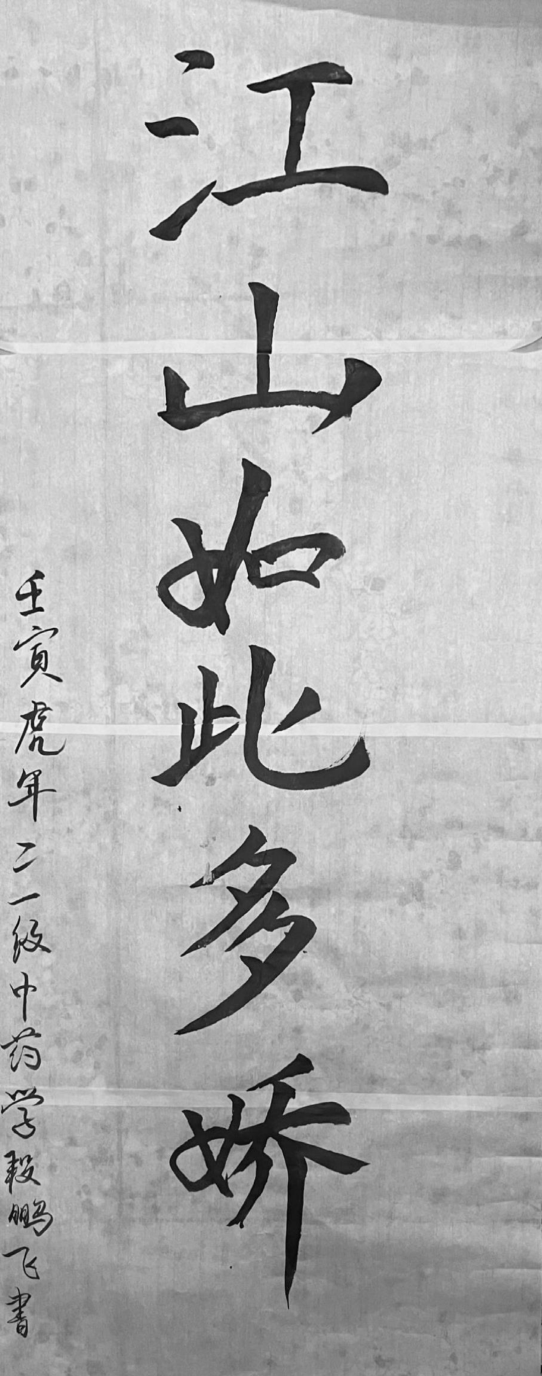 江山如此多娇
壬寅虎年二一级中药学段鹏飞书